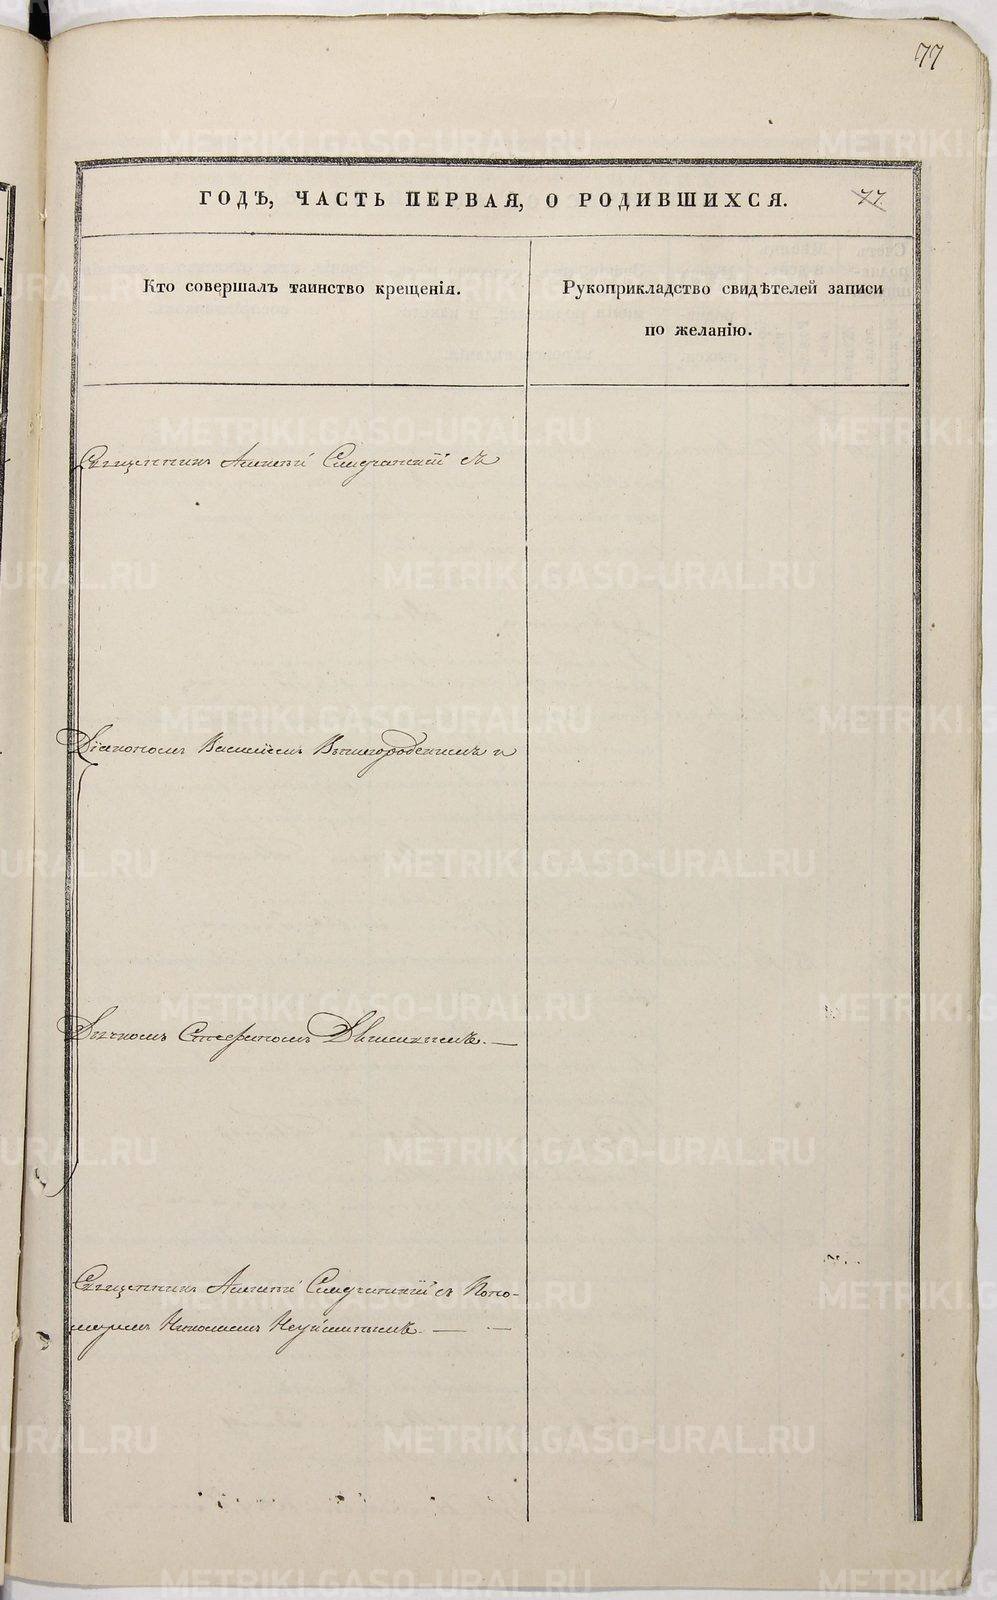 77
ГОДЪ, ЧАСТЬ ПЕРВАЯ, О РОДИВШИХСЯ. 77.
Кто совершалъ таинство крещенія.
Рукоприкладство свидѣтелей записи
по желанію.
Священникъ Алексѣй съ
Діакономъ Василіемъ Вышегородскимъ и
Дьячкомъ Стефаномъ
Священникъ Алексѣй съ Поно-
маремъ Николаемъ Неуйминымъ. —
METRIKI.GASO-URAL.RU